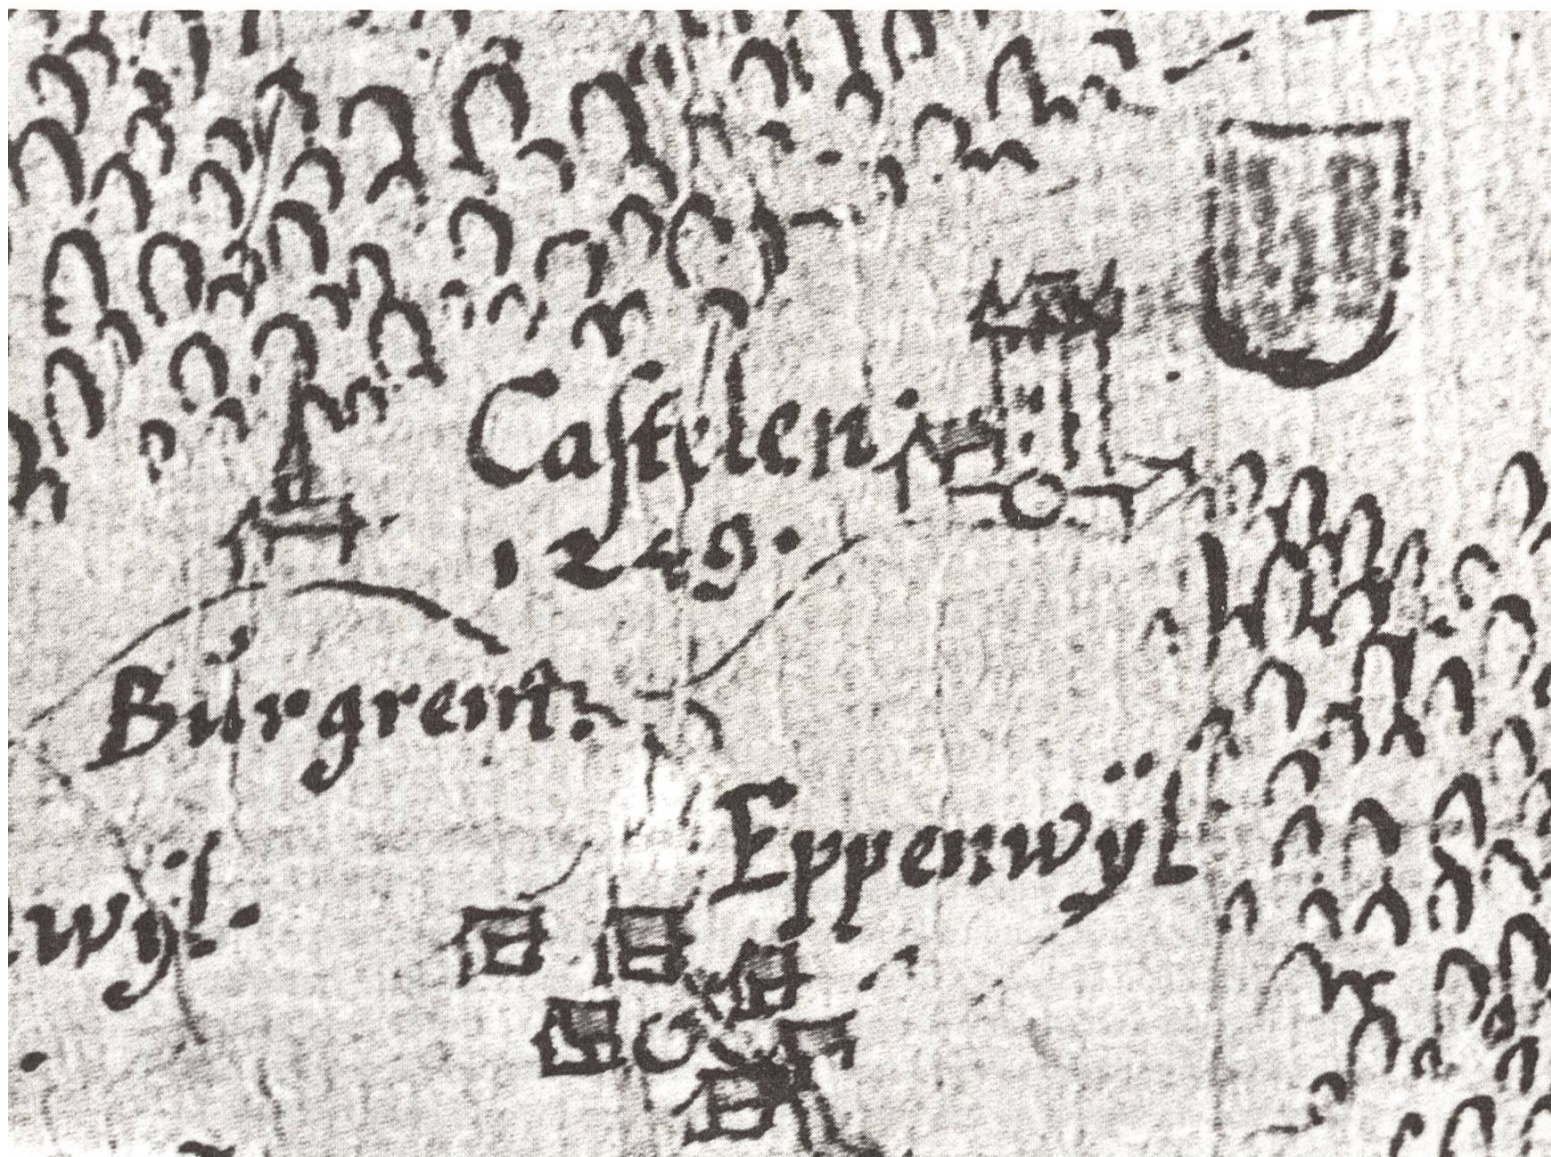 Caſtelen
1249.
Burgrent.
Eppenwÿl
wÿl.